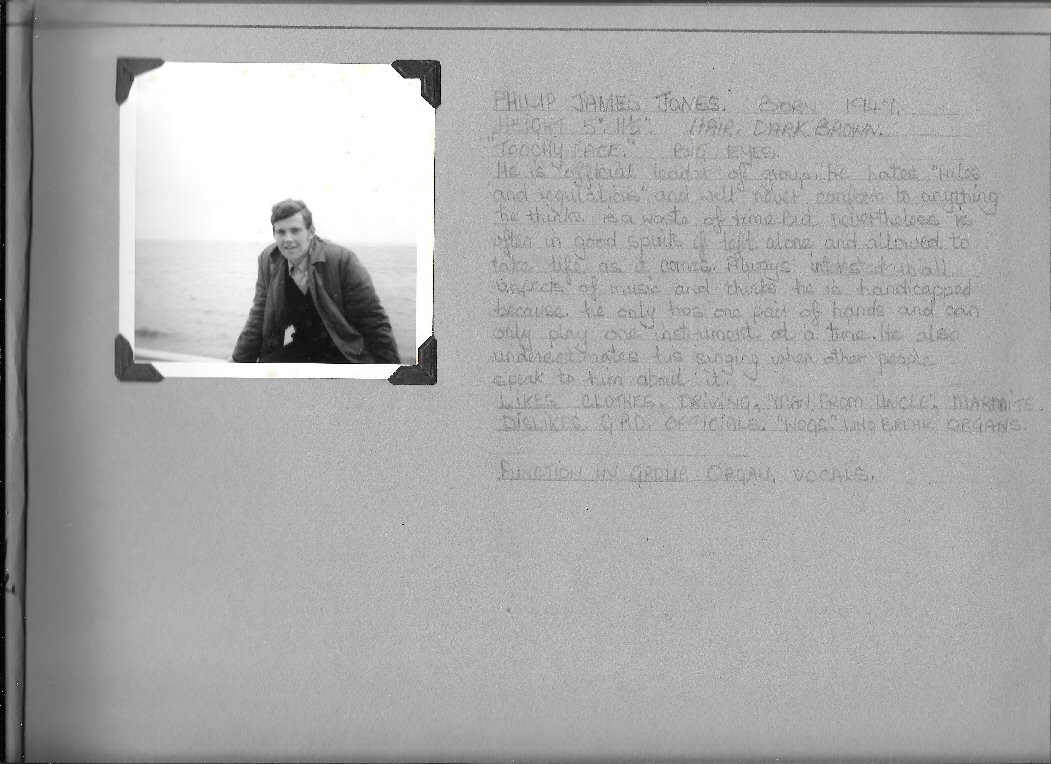 PHILIP JAMES JONES. BORN 1947.
HEIGHT 5' 11½". HAIR. DARK BROWN.
"TOOCHY FACE." BIG EYES.
He is unofficial leader of group. He hates "rules
and regulations" and will never conform to anything
he thinks is a waste of time but nevertheless is
often in good spirits if left alone and allowed to
take life as it comes. Always interested in all
aspects of music and thinks he is handicapped
because he only has one pair of hands and can
only play one instrument at a time. He also
underestimates his singing when other people
speak to him about it.
LIKES CLOTHES, DRIVING, "MAN FROM UNCLE", MARMITE.
DISLIKES G.P.O. OFFICIALS. "WOGS" WHO BREAK ORGANS.
FUNCTION IN GROUP ORGAN, VOCALS.